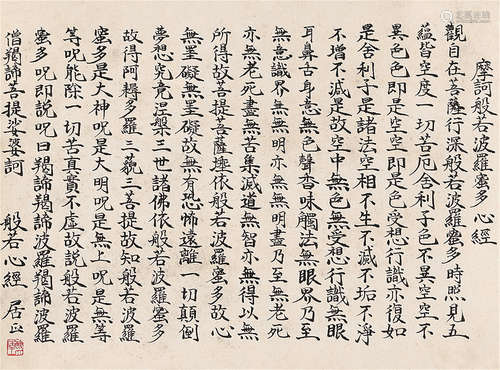 摩訶般若波羅蜜多心經
觀自在菩薩行深般若波羅蜜多時照見五
蘊皆空度一切苦厄舍利子色不異空空不
異色色即是空空即是色受想行識亦復如
是舍利子是諸法空相不生不滅不垢不淨
不增不減是故空中無色無受想行識無眼
耳鼻舌身意無色聲香味觸法無眼界乃至
無意識界無無明亦無無明盡乃至無老死
亦無老死盡無苦集滅道無智亦無得以無
所得故菩提菩薩埵依般若波羅蜜多故心
無罣礙無罣礙故無有恐怖遠離一切顛倒
夢想究竟涅槃三世諸佛依般若波羅蜜多
故得阿耨多羅三藐三菩提故知般若波羅
蜜多是大神呪是大明呪是無上呪是無等
等呪能除一切苦真實不虛故說般若波羅
蜜多呪即說呪曰羯諦羯諦波羅羯諦波羅
僧羯諦菩提娑婆訶 般若心經 居正